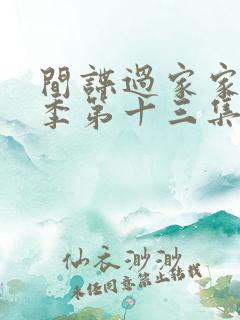 間諜過家家
季第十三集
仙衣渺渺
未经同意禁止转载